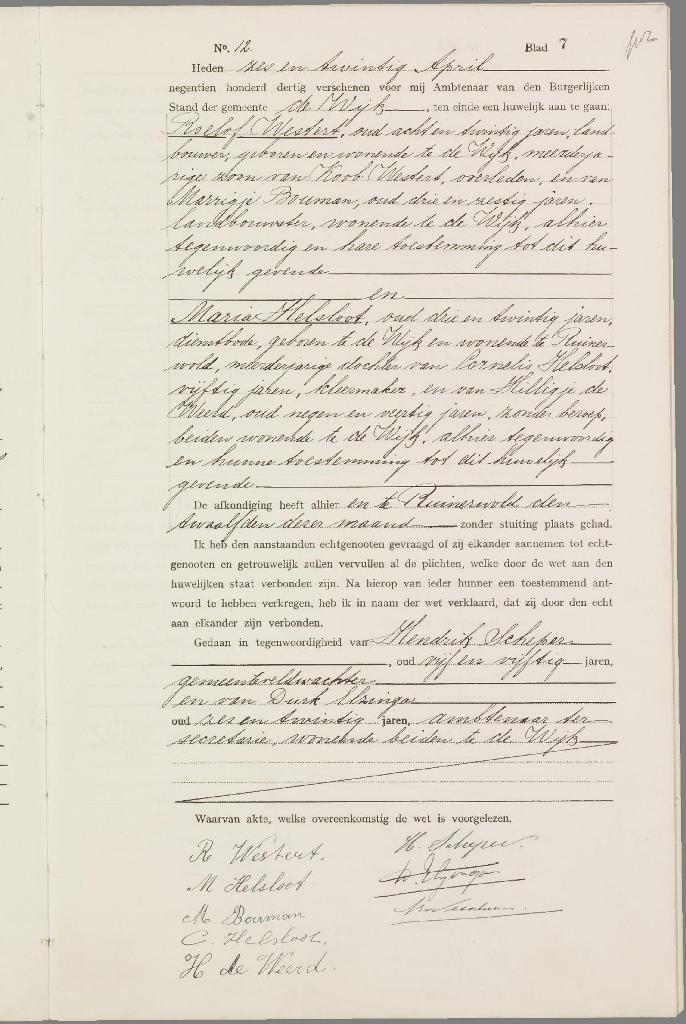 No. 12 Blad 7
Heden zes en twintig April
negentien honderd dertig verschenen voor mij Ambtenaar van den Burgerlijken
Stand der gemeente de Wijk, ten einde een huwelijk aan te gaan:
Roelof Westert, oud acht en twintig jaren, land-
bouwer, geboren en wonende te de Wijk, meerderja-
rige zoon van Koob Westert, overleden, en van
Marrigje Bouman, oud drie en zestig jaren,
landbouwster, wonende te de Wijk, alhier
tegenwoordig en hare toestemming tot dit hu-
welijk gevende
en
Maria Helsloot, oud drie en twintig jaren,
dienstbode, geboren te de Wijk en wonende te Ruiner-
wold, meerderjarige dochter van Cornelis Helsloot,
vijftig jaren, kleermaker, en van Hilligje de
Weerd, oud negen en veertig jaren, zonder beroep,
beiden wonende te de Wijk, alhier tegenwoordig
en hunne toestemming tot dit huwelijk
gevende
De afkondiging heeft alhier en te Ruinerwold den
twaalfden dezer maand zonder stuiting plaats gehad.
Ik heb den aanstaanden echtgenooten gevraagd of zij elkander aannemen tot echt-
genooten en getrouwelijk zullen vervullen al de plichten, welke door de wet aan den
huwelijken staat verbonden zijn. Na hierop van ieder hunner een toestemmend ant-
woord te hebben verkregen, heb ik in naam der wet verklaard, dat zij door den echt
aan elkander zijn verbonden.
Gedaan in tegenwoordigheid van Hendrik Scheper
, oud vijf en vijftig jaren,
gemeenteveldwachter
en van Durk Elzinga
oud zes en twintig jaren, ambtenaar ter
secretarie, wonende beiden te de Wijk
Waarvan akte, welke overeenkomstig de wet is voorgelezen.
R Westert. H. Scheper.
M Helsloot D. Elzinga
M Bouman
C. Helsloot.
H de Weerd.